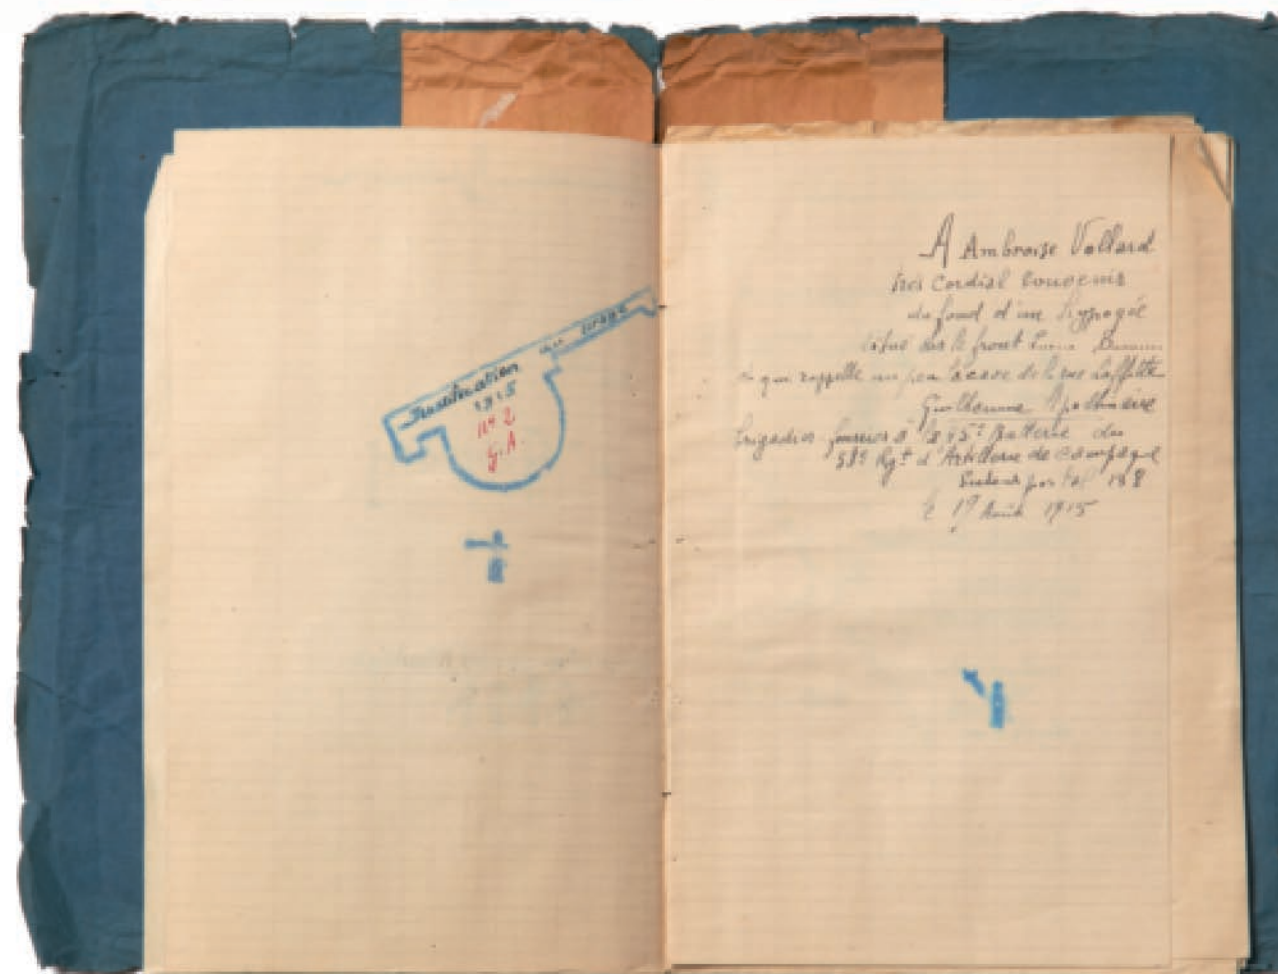 Justification
du tirage
1915
No 2
G.A.
A Ambroise Vollard
très cordial souvenir
du fond d'un hypogée
situé sur le front
qui rappelle un peu la cave de la rue Laffitte
Guillaume Apollinaire
brigadier fourrier à la 45e Batterie du
38e Rgt d'Artillerie de campagne
Secteur postal 138
Août 1915